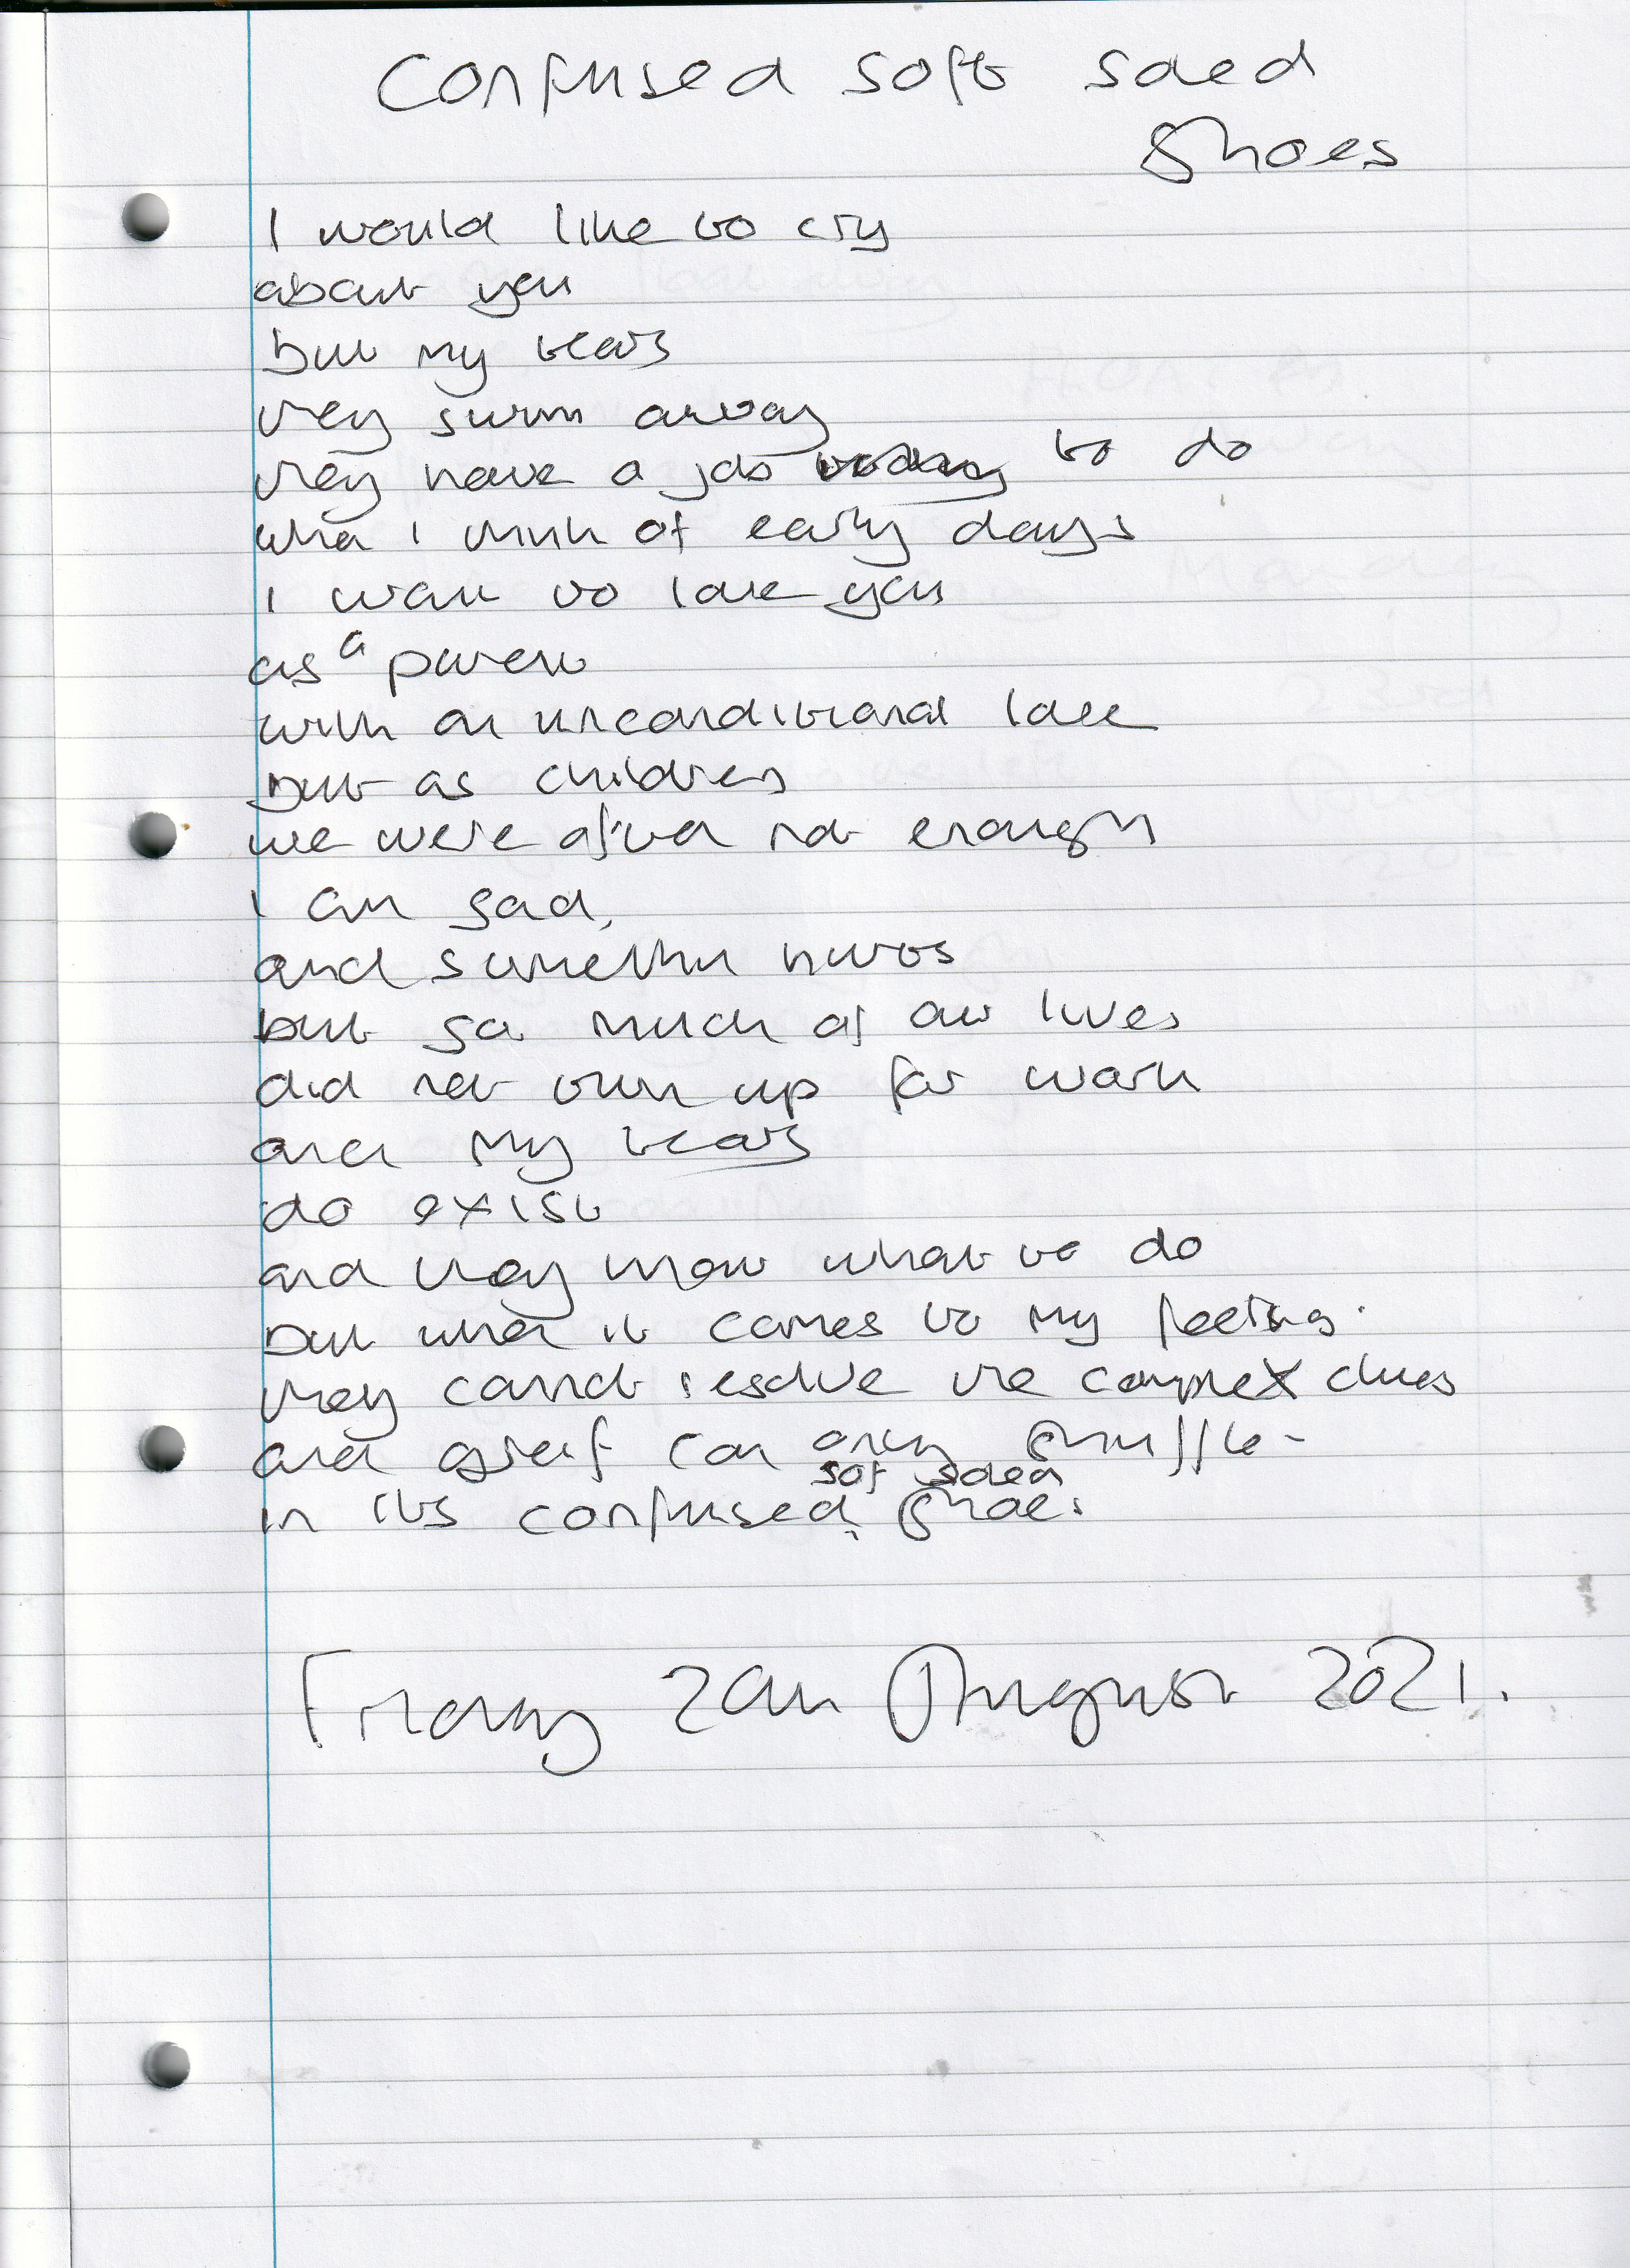 Confused soft soled
Shoes
I would like to cry
about you
but my tears
they swim away
they have a job to do
when I think of early days
I want to love you
as a parent
with an unconditional love
but as children
we were often not enough
I am sad,
and something hurts
but so much of our lives
did not turn up for work
and my tears
do exist
and they know what to do
but when it comes to my feelings.
they cannot resolve the complex clues
and grief can only shuffle
in its confused, soft soled shoes
Friday 20th August 2021.